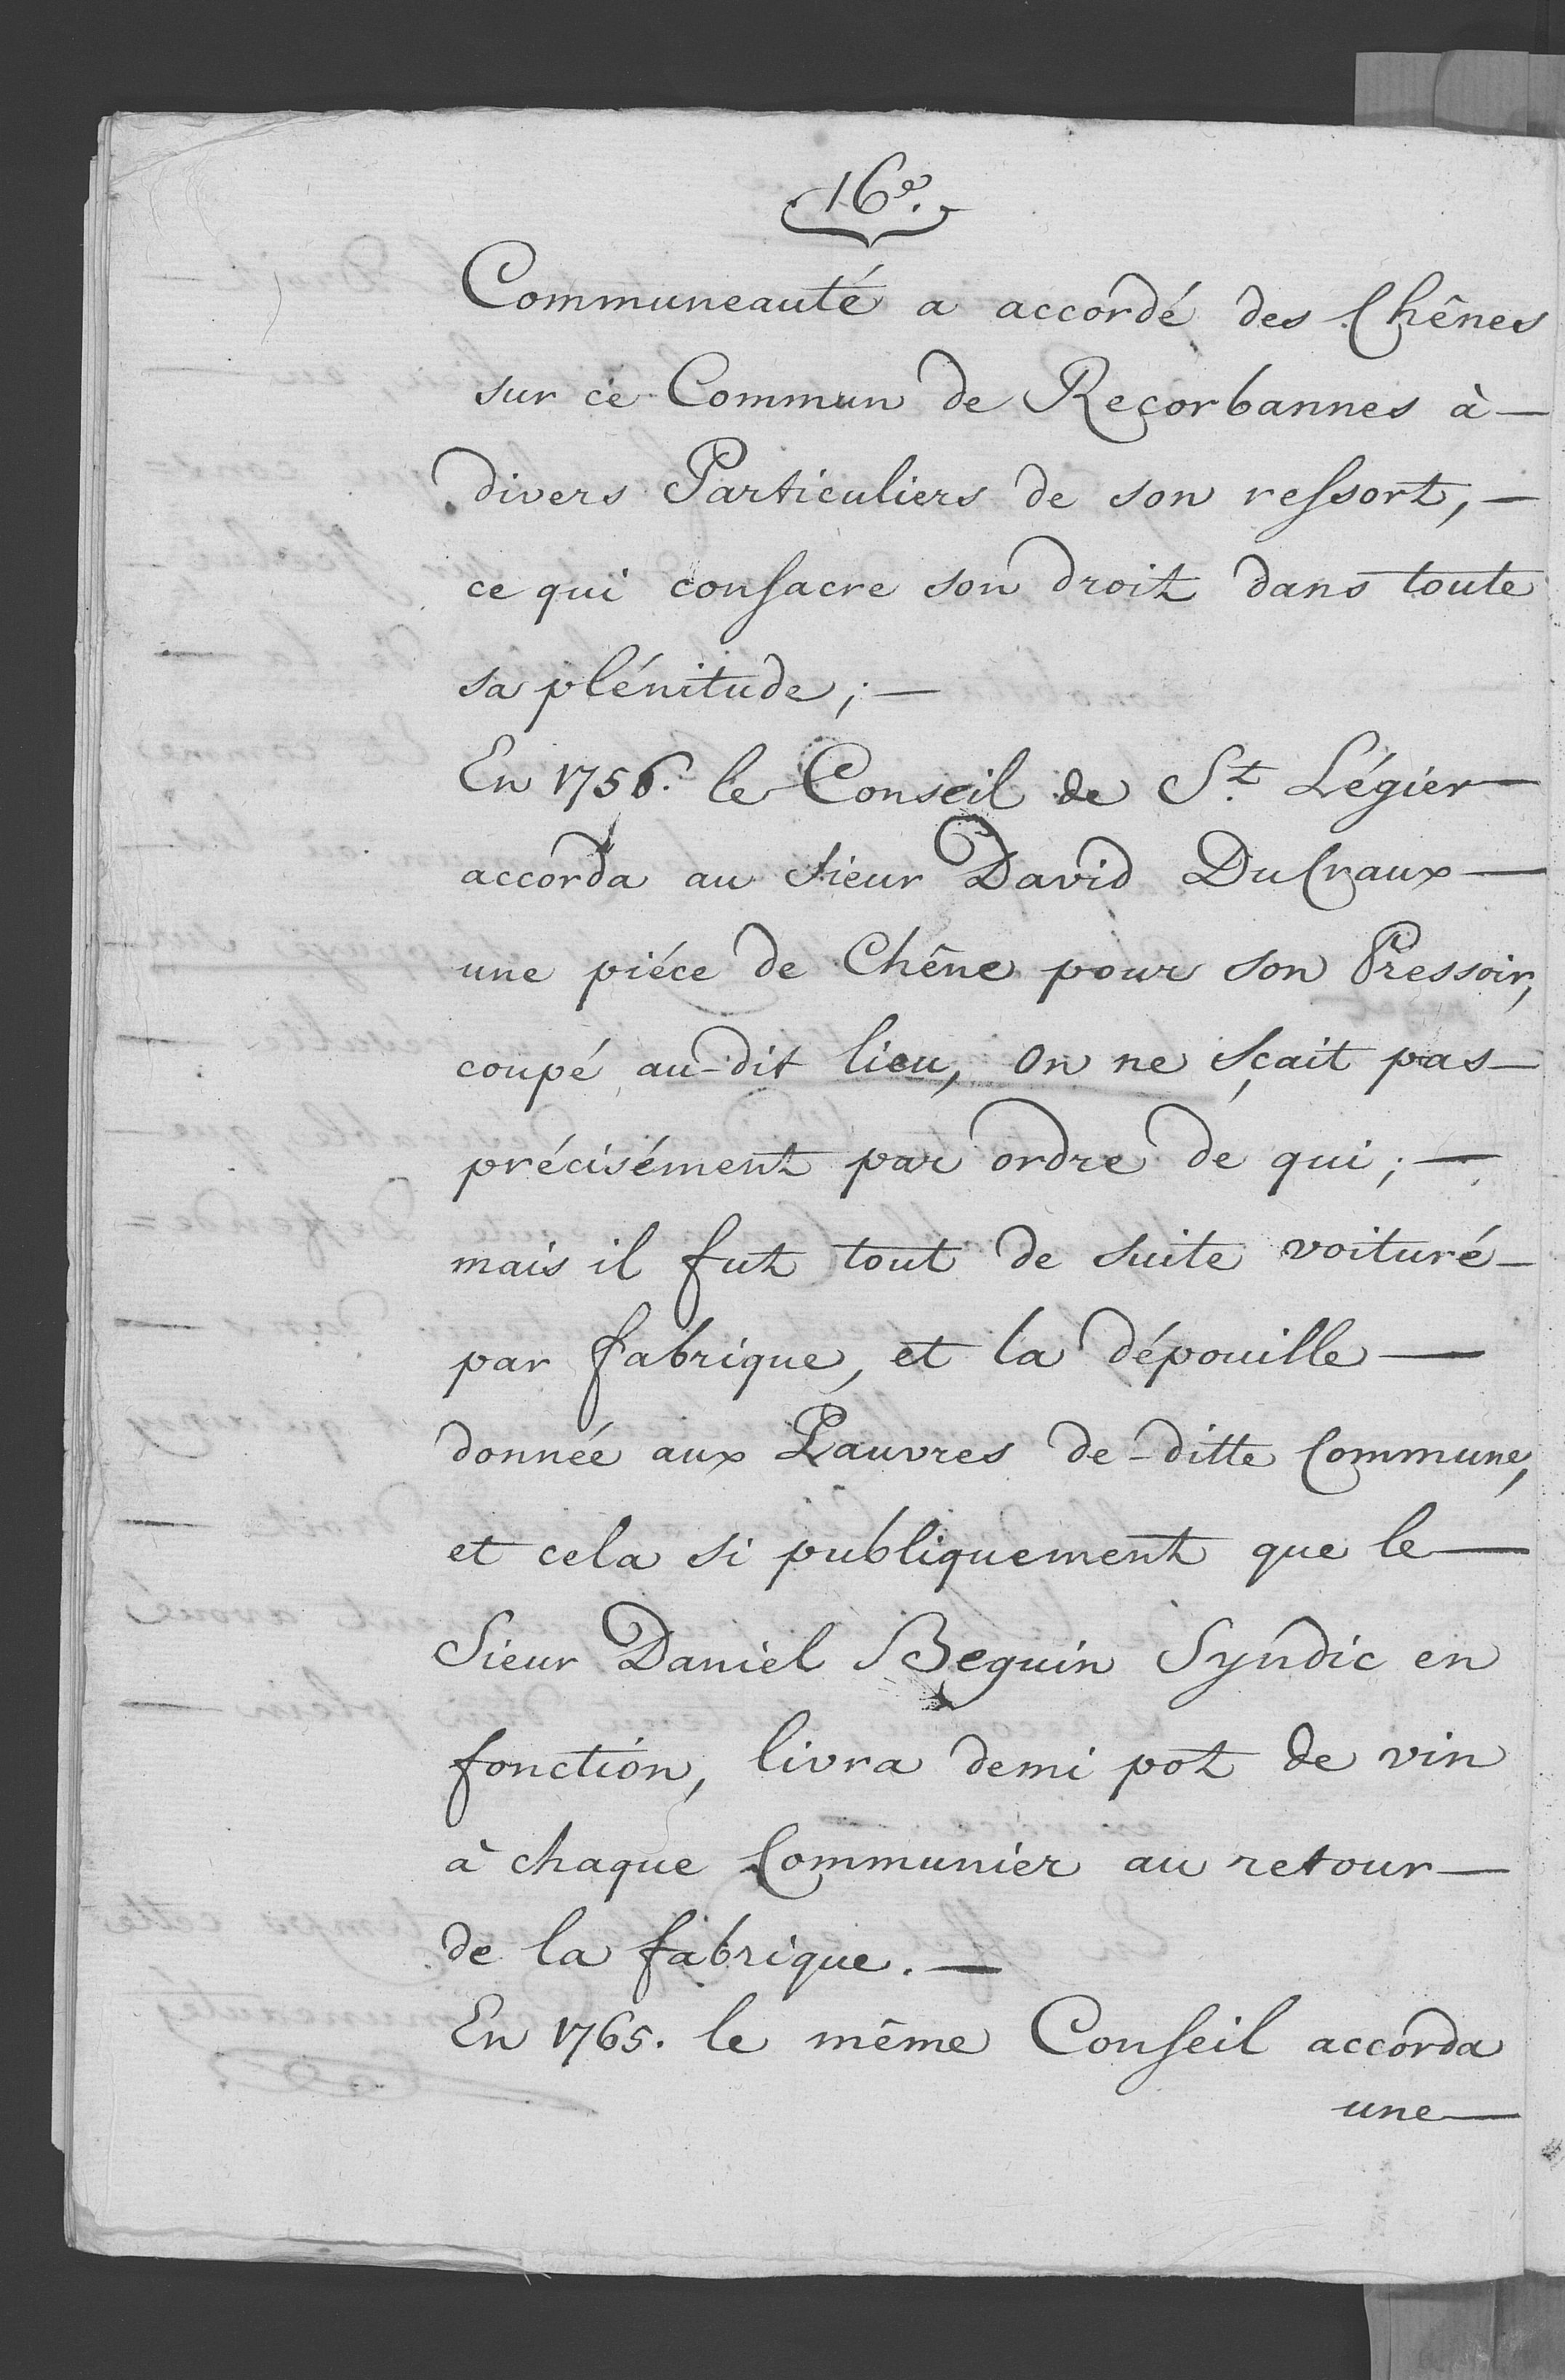 16e.
Communeauté a accordé des Chênes
sur ce Commun de Reçorbannes à —
divers Particuliers de son ressort, —
ce qui consacre son droit dans toute
sa plénitude; —
En 1756. le Conseil de St. Légier —
accorda au sieur David DuCraux —
une piéce de Chêne pour son Pressoir,
coupé au-dit lieu, on ne sçait pas —
précisément par ordre de qui; —
mais il fut tout de suite voituré —
par fabrique, et la dépouille —
donnée aux Pauvres de-ditte Commune,
et cela si publiquement que le —
Sieur Daniel Beguin Syndic en
fonction, livra demi pot de vin
à chaque Communier au retour —
de la fabrique. —
En 1765. le même Conseil accorda
une —